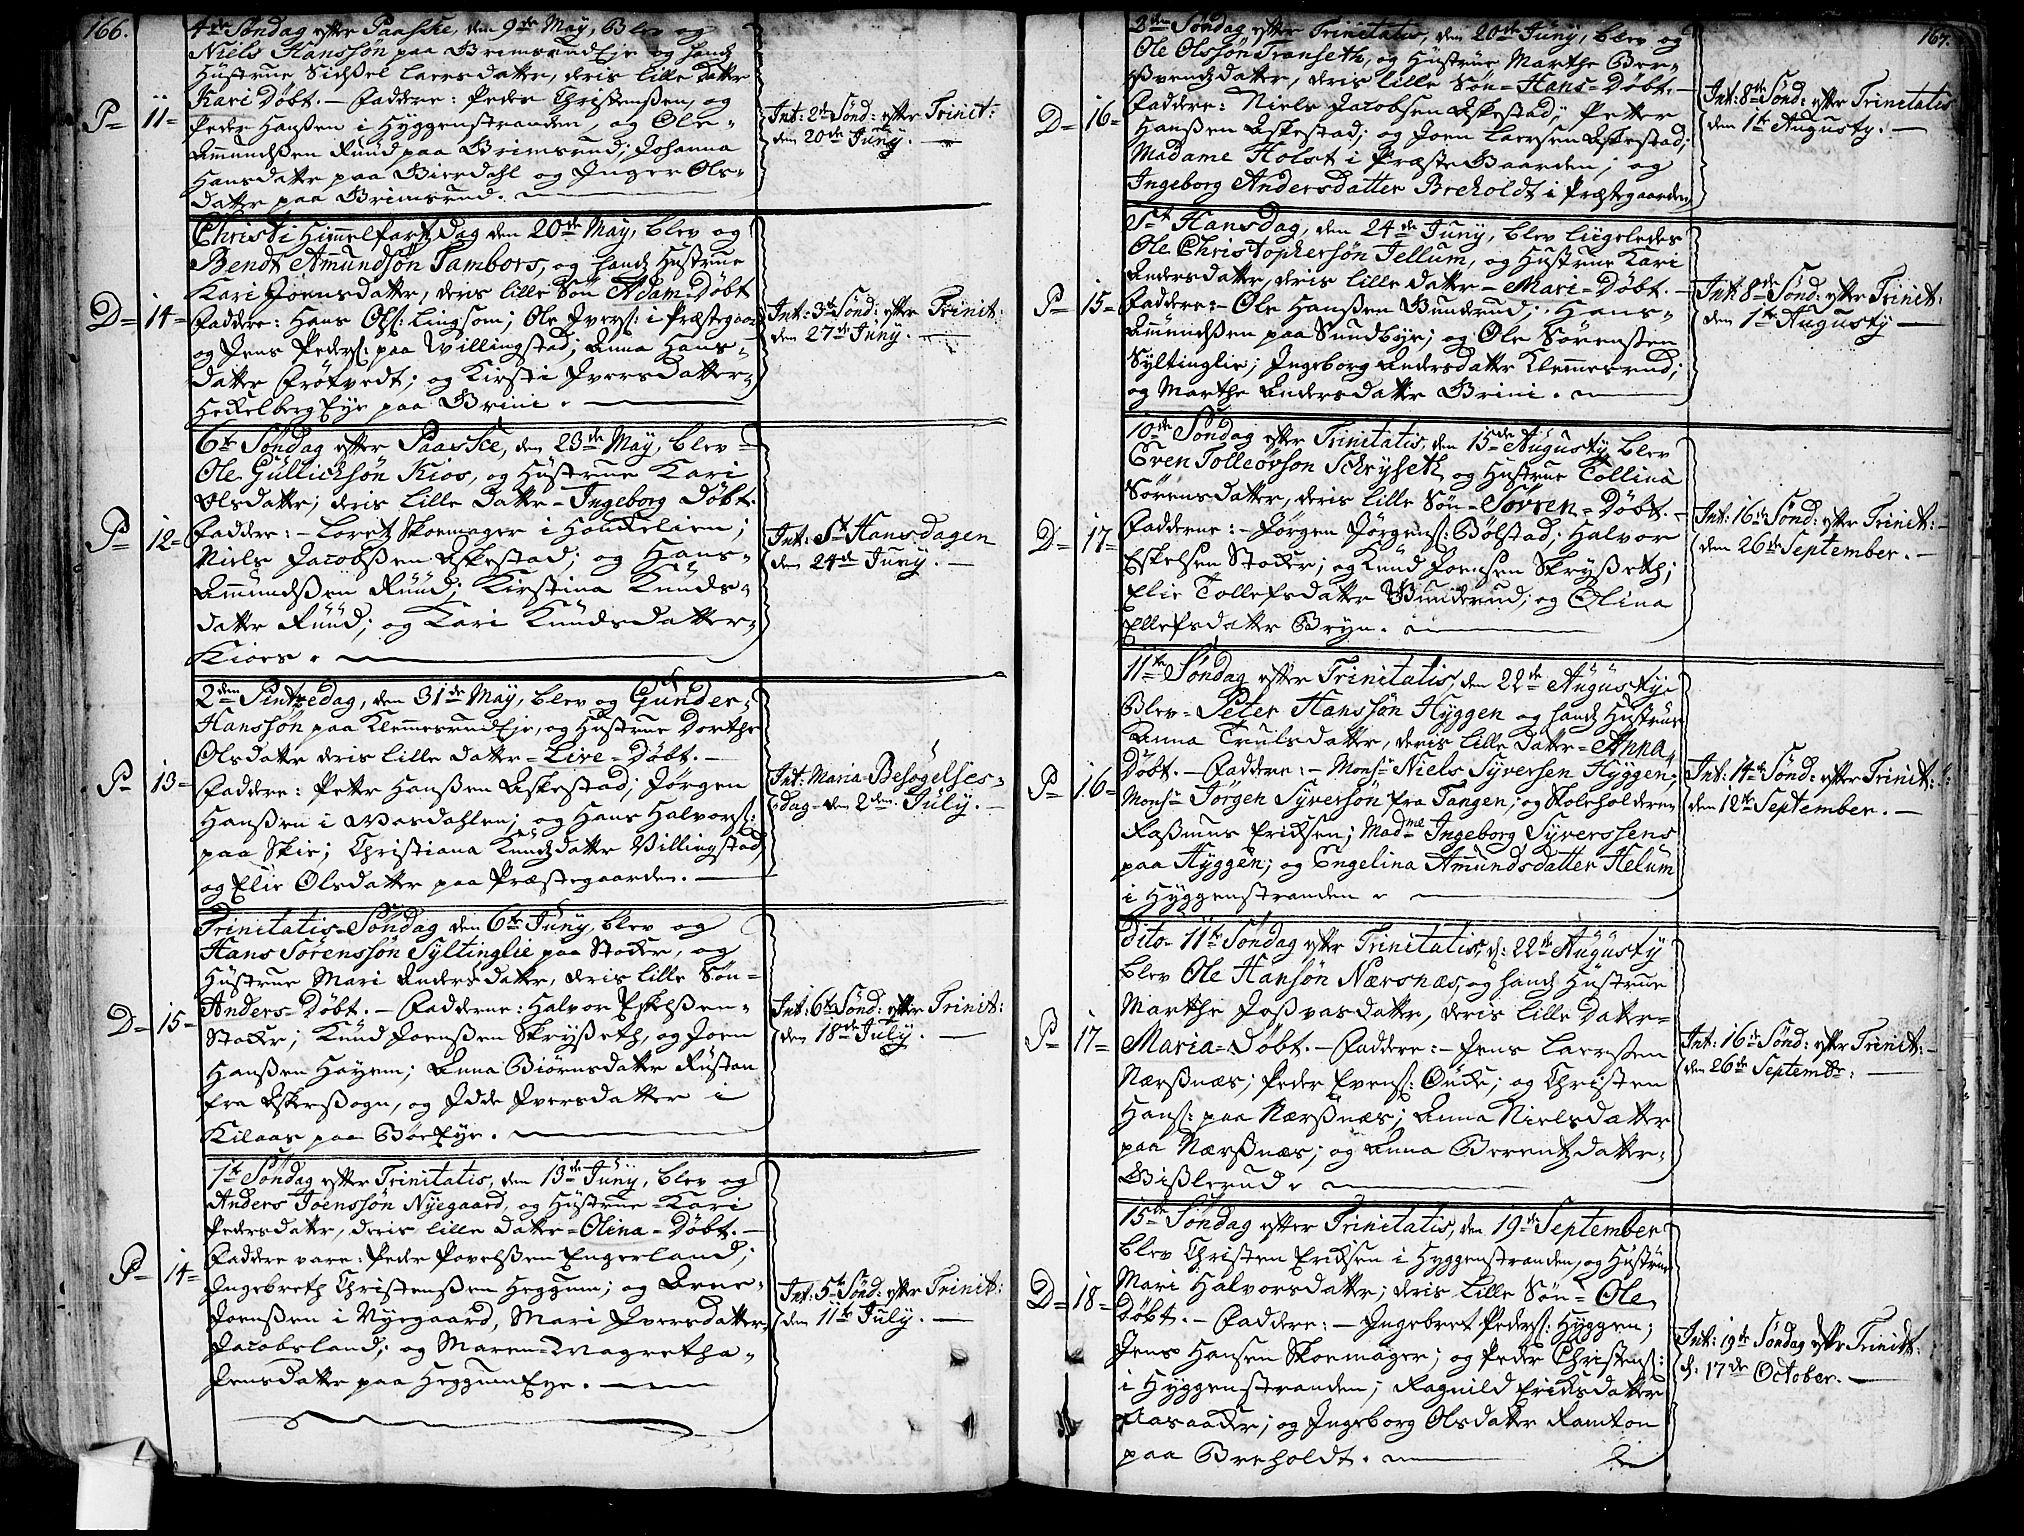 166.
4de Søndag efter Paaske, den 9de May, Blev og
Niels Hanssøn paa BrimsrudEje og hands
Hustrue Sidsel Larsdatter, deris lille datter
Kari Døbt. - Faddere: Peder Christenßen, og
P= 11=
Peder Hanßen i Hyggenstranden, og Ole-
Amundßen Ruud paa Brimsrud; Johanna
Hansdatter paa Bierdahl og Inger Ols-
datter paa Brimsrud.
Int: 2de Sønd: efter Trinit:
den 20de Juny.
Christi Himmelfartzdag den 20de May, blev og
Bendt Amundsøn Tambors, og hands Hustrue
Kari Joensdatter, deris lille Søn Adam=Døbt
D= 14=
Faddere: Hans Ols: Lingsom; Ole Ivers: i Præstegaar:
og Jens Peders: paa Willingstad; Anna Hans-
datter Frøtvedt; og Kirsti Iversdatter-
HekelbergEye paa Brini.
Int: 3de Sønd: efter Trinit:
den 27de Juny.
6te Søndag efter Paaske, den 23de May, blev
Ole Gullichsøn Kios, og Hustrue Kari
Olsdatter; deris lille datter-Ingeborg Døbt.
P= 12=
Faddere:- Loretz Skoemager i Houkelien;
Niels Jacobßen Askestad; og Hans-
Amundßen Ruud; Kirstina Knuds-
datter Ruud; og Kari Knudsdatter-
Kioes.
Int: St Hansdagen
den 24de Juny.
2den Pintzedag, den 31de May, blev og Gunder-
Hanssøn paa KlemmesrudEje, og Hustrue Dorthe
Olsdatter deris lille datter-Live-Døbt.
P= 13=
Faddere: Petter Hanßen Askestad; Jørgen
Hanßen i Wasdahlen; og Hans Halvors:
paa Skie; Christiana Knudsdatter Villingstad,
og Elie Olsdatter paa Præstegaarden.
Int: Maria-Besøgelses-
dag-den 2den July.
Trinitatis-Søndag den 6te Juny, blev og
Hans Sørenssøn Syltinglie paa Stocker, og
Hustrue Mari Andersdatter, deris lille Søn=
Anders=Døbt. - Fadderne: Halvor Eskelßen-
D= 15=
Stocker; Knud Joenßen Skryßeth, og Joen
Hanßen Høyem; Anna Biørnsdatter Rustan
fra Askersogn, og Idde Iversdatter i
Kilaas paa BøeEye.
Int: 6te Sønd: efter Trinit:
den 18de July.
1te Søndag efter Trinitatis, den 13de Juny, blev og
Anders Joenssøn Nyegaard, og Hustrue-Kari
Pedersdatter, deris lille datter=Olina=Døbt.
Faddere vare: Peder Povelßen Engerland;
P= 14=
Ingebreth Christenßen Heggum; og Arne-
Joenßen i Nyegaard, Mari Iversdatter
Jacobsland; og Maren-Magretha-
Jensdatter paa HeggumEye.
Int: 5te Sønd: efter Trinit:
den 11te July.
167.
2den Søndag efter Trinitatis, den 20de Juny, blev og
Ole Olssøn Transeth, og Hustrue Marthe Ber-
ßvendsdatter, deris lille Søn=Hans=Døbt.
D= 16=
Faddere: Niels Jacobsen Askestad; Petter
Hanßen Askestad; og Joen Larsen Askestad;
Madame Holst i PræsteGaarden; og
Ingeborg Andersdatter Breholdt i Præstegaarden
Int: 8de Sønd: efter Trinitatis
den 1te Augusty.
St Hansdag, den 24de Juny, blev liigeledes
Ole Christophersøn Jellum, og Hustrue Kari
Andersdatter, deris lille datter-Mari=Døbt.
P= 15=
Faddere:- Ole Hanßen Bunderud; Hans-
Amundßen paa Sundbye; og Ole Sørenßen
Syltinglie; Ingeborg Andersdatter Klemmesrud;
og Marthe Andersdatter Brini.
Int: 8de Sønd: efter Trinit:
den 1te Augusty
10de Søndag efter Trinitatis, den 15de Augusty, blev
Even Tolleøvson Schryseth, og Hustrue Tollina
Sørensdatter, deris lille Søn-Søvren=Døbt.
D= 17=
Fadderne:- Jørgen Jørgens: Bølstad; Halvor
Eskelsen Stocker; og Knud Joensen Skryßeth;
Elie Tollefsdatter Bunderud; og Olina
Ellefsdatter Bryn.
Int: 16de Sønd: efter Trinit:
den 26de September.
11te Søndag efter Trinitatis, den 22de Augusty-
Blev-Peter Hanssøn Hyggen og hands Hustrue
Anna Trulsdatter, deris lille datter=Anna,
Døbt. - Faddere:- Monsr Niels Syversen Hyggen,
P= 16=
Monsr Jørgen Syversøn fra Tangen; og Skoleholderen
Raßmus Eriksen; Madme Ingeborg Syverssens
paa Hyggen; og Engelina Amundsdatter Helum
i Hyggenstranden
Int: 14de Sønd: efter Trinit:
den 12te September.
Dito- 11te Søndag efter Trinitatis, d: 22de Augusty
blev Ole Hansøn Nærsnæs, og hands Hustrue
Marthe Joßvasdatter, deris lille Datter=
P= 17=
Maria=Døbt. - Faddere:- Jens Larßen
Nærßnæs; Peder Evens: Ouke; og Christen
Hans: paa Nærßnæs; Anna Nielsdatter
paa Nærßnæs; og Anna Berentzdatter-
Gißlerud
Int: 16de Sønd: efter Trinit:
den 26de Septembr:
15de Søndag efter Trinitatis, den 19de September
blev Christen Eriksen i Hyggenstranden, og Hustrue
Mari Halvorsdatter; deris lille Søn= Ole,
D= 18=
Døbt. - Faddere:- Ingebret Peders: Hyggen;
Jens Hansen Skoemager; og Peder Christens:
i Hyggenstranden; Ragnild Eriksdatter
Aasaaker; og Ingeborg Olsdatter Ramton
paa Breholdt.
Int: 19de Søndag efter Trinit:
d: 17de October.